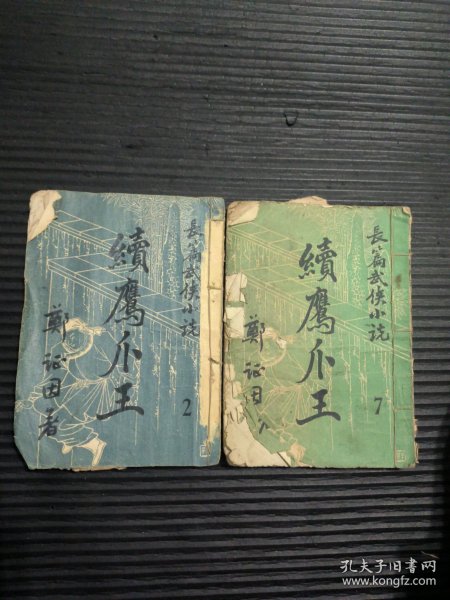 長篇武俠小說
續鷹爪王
鄭証因著
2
長篇武俠小說
續鷹爪王
鄭証因
7
孔夫子旧书网
www.kongfz.com